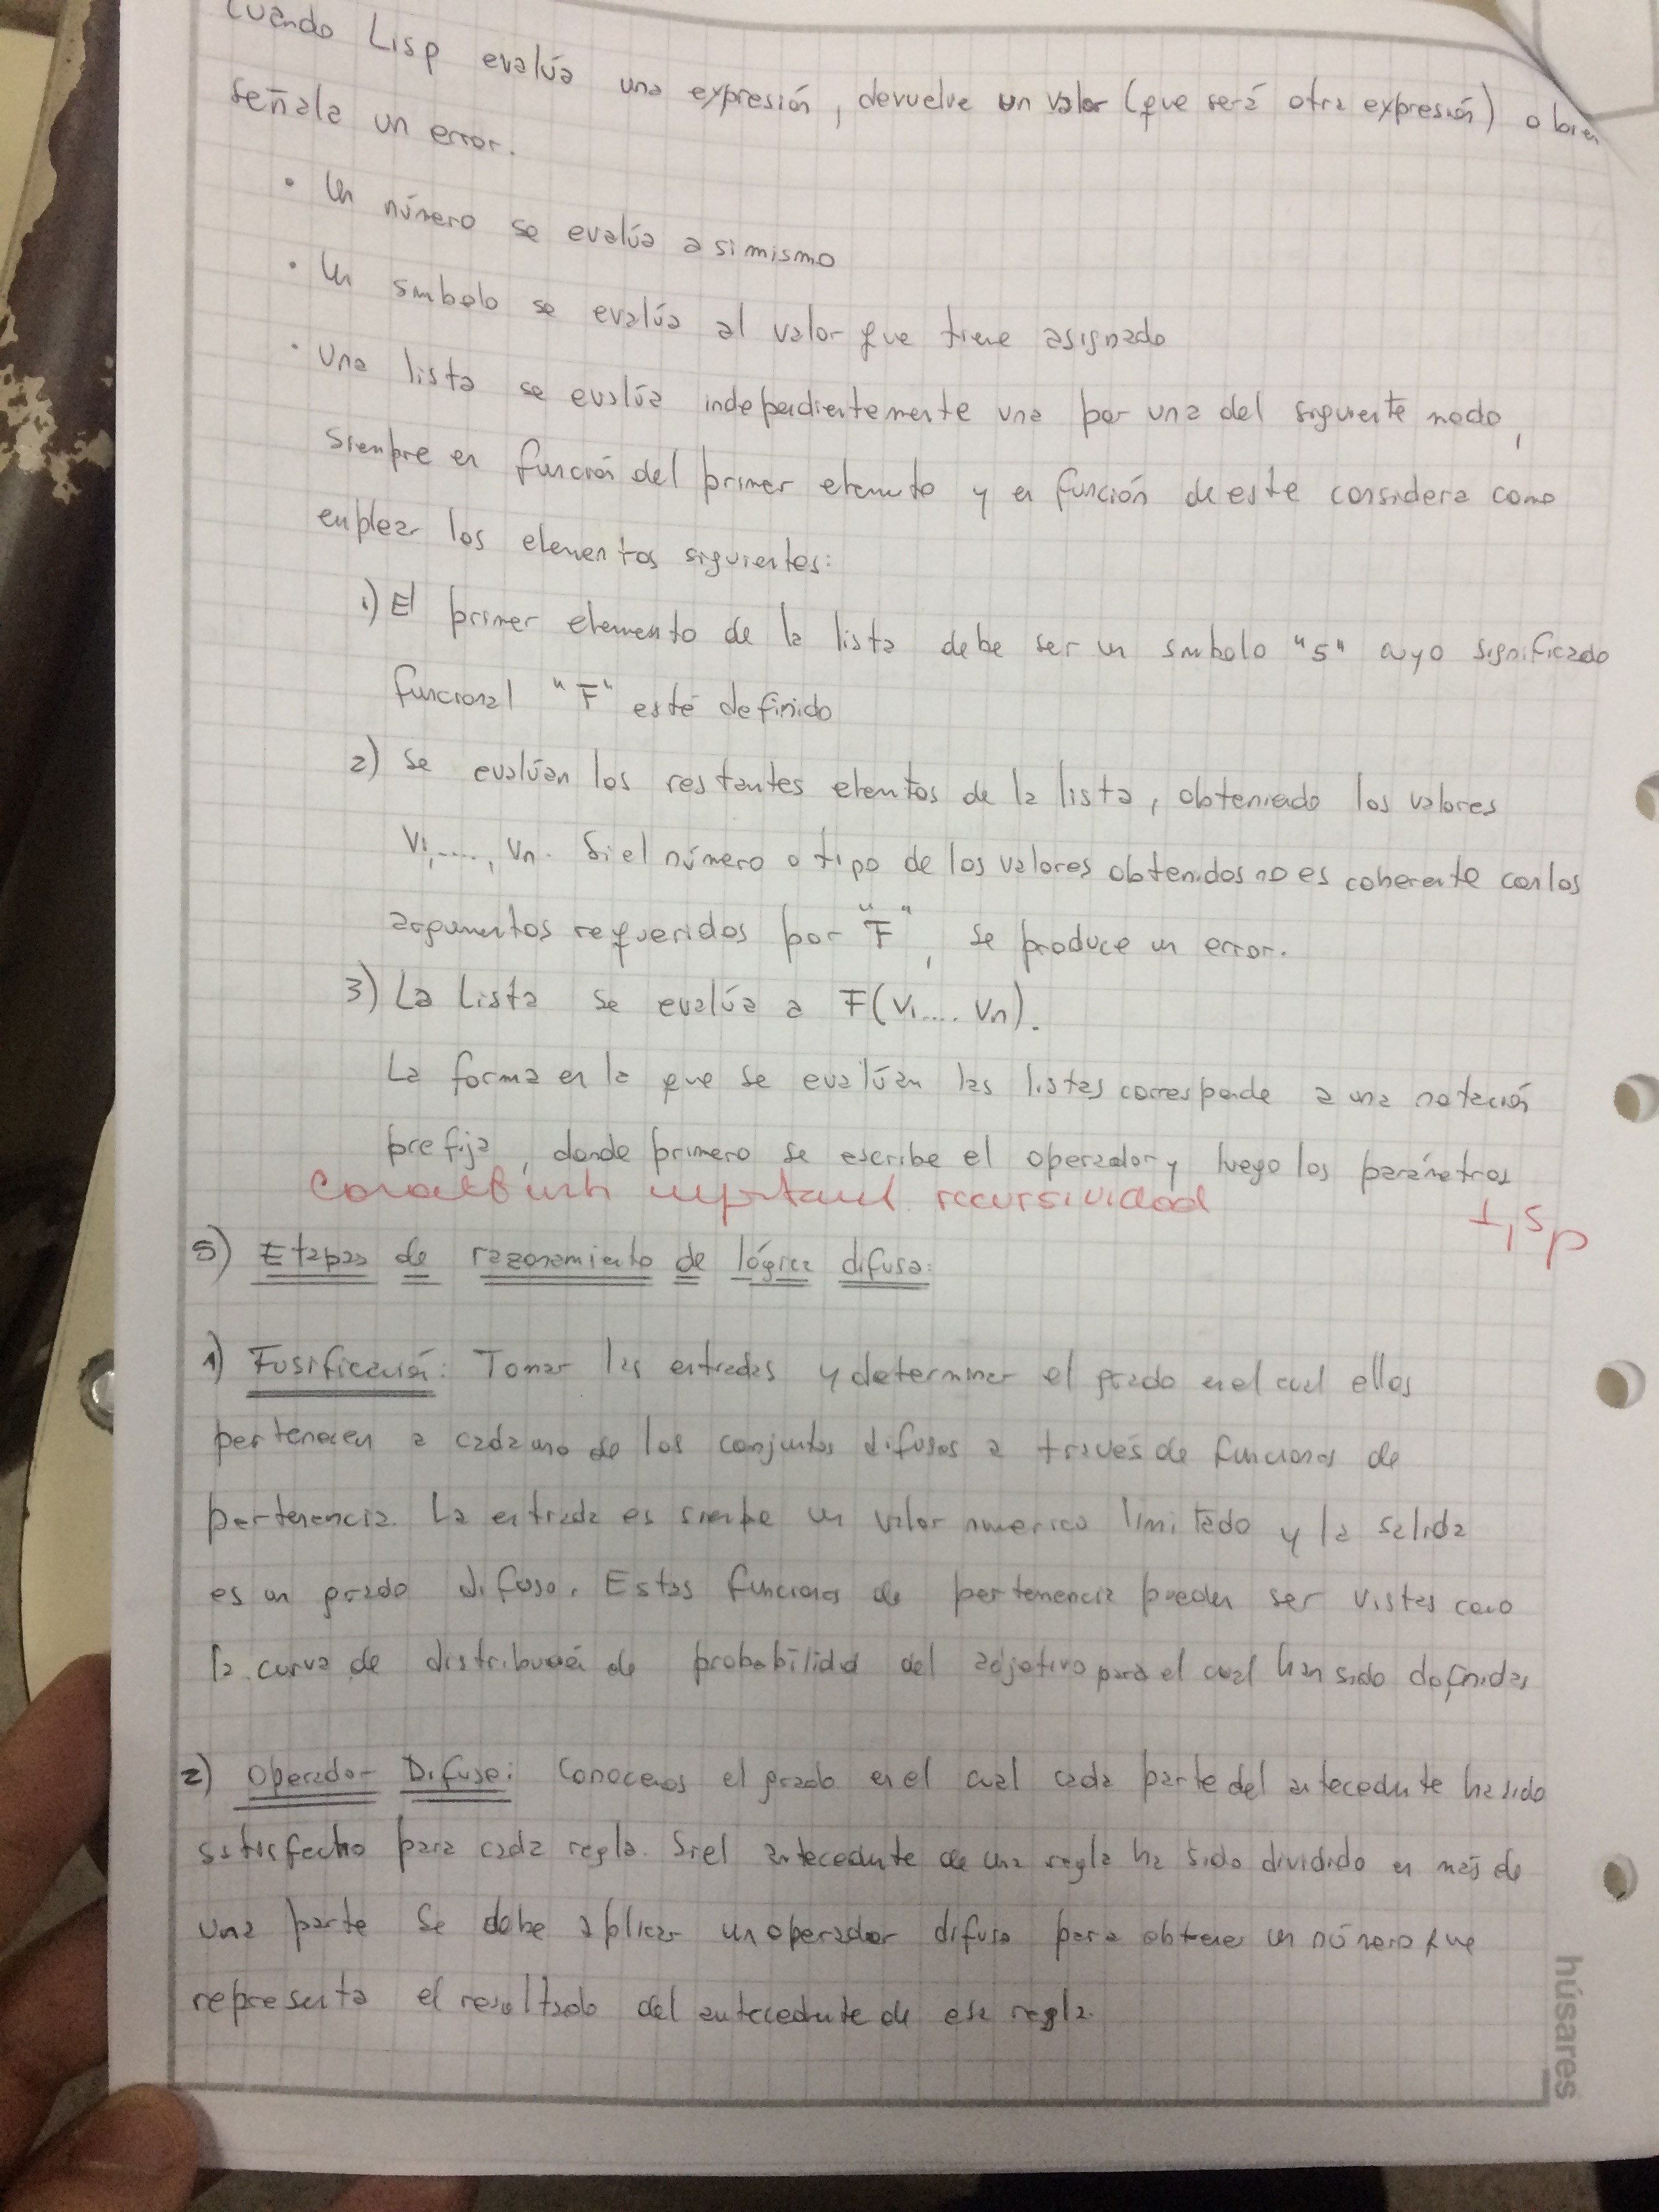 Cuando Lisp evalúa una expresión, devuelve un valor (que será otra expresión) o bien
señala un error.
• Un número se evalúa a si mismo
• Un smbolo se evalúa al valor que tiene asignado
• Una lista se evalúa independientemente una por una del siguiente modo,
siempre en función del primer elemento y en función de este considera como
emplear los elementos siguientes:
1) El primer elemento de la lista debe ser un smbolo "S" cuyo significado
funcional "F" esté definido
2) Se evalúan los restantes elemtos de la lista, obteniendo los valores
V1,...., Vn. Si el número o tipo de los valores obtenidos no es coherente con los
argumentos requeridos por "F", se produce un error.
3) La Lista se evalúa a F(V1.... Vn).
La forma en la que se evalúan las listas corresponde a una notación
prefija, donde primero se escribe el operador y luego los parámetros
recursividad
5) Etapas de razonamiento de lógica difusa:
1) Fusificación: Tomar las entradas y determinar el grado en el cual ellos
pertenecen a cada uno de los conjuntos difusos a través de funciones de
pertenencia. La entrada es siempe un valor numerico limitado y la salida
es un grado difuso. Estas funciones de pertenencia pueden ser vistas como
la curva de distribución de probabilidad del adjetivo para el cual han sido definidas
2) Operador Difuso: Conocemos el grado en el cual cada parte del antecedente ha sido
satisfecho para cada regla. Si el antecedente de una regla ha sido dividido en más de
una parte se debe aplicar un operador difuso para obtener un número que
representa el resultado del antecedente de esa regla.
húsares